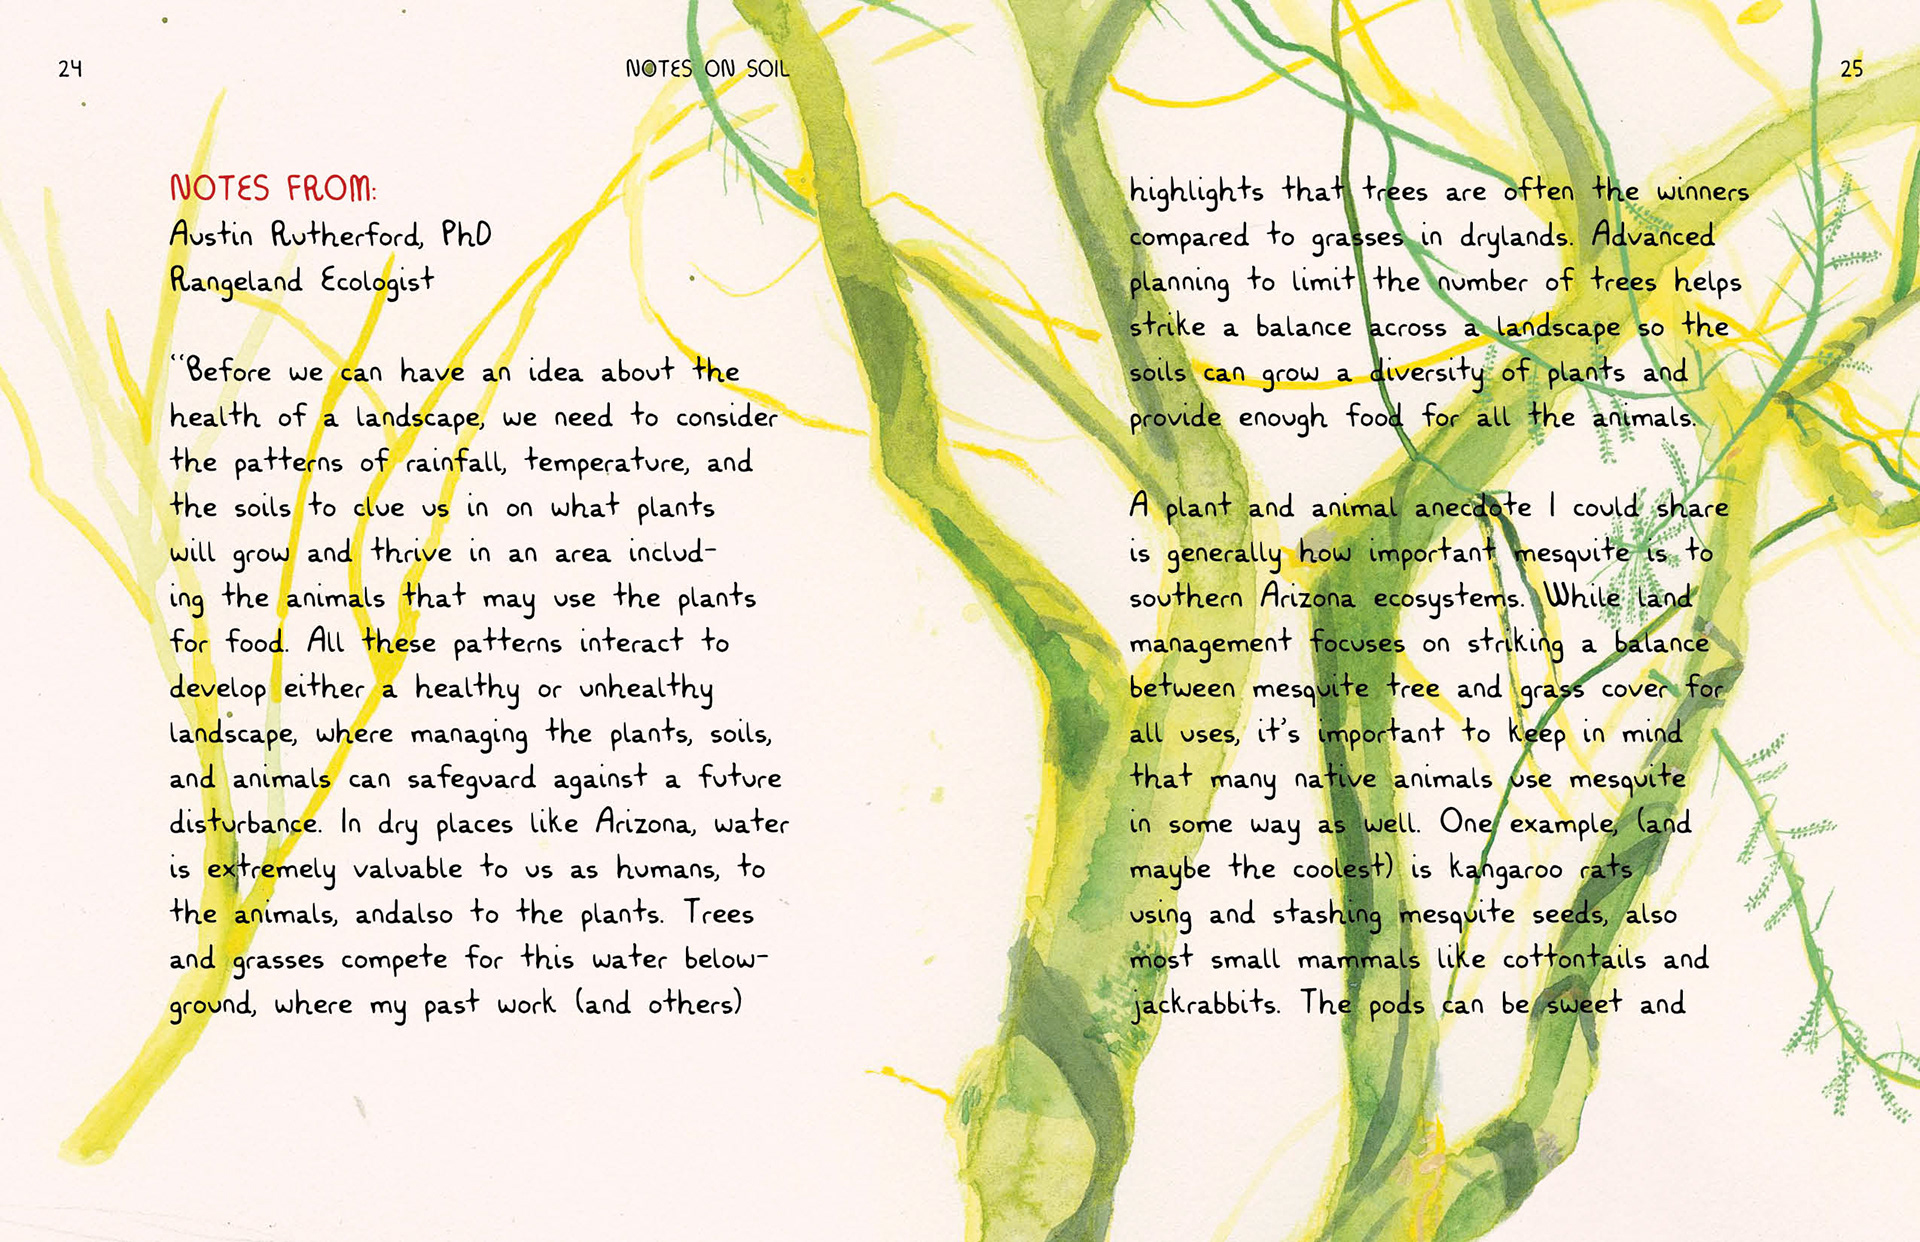 24
NOTES ON SOIL
NOTES FROM:
Austin Rutherford, PhD
Rangeland Ecologist
“Before we can have an idea about the
health of a landscape, we need to consider
the patterns of rainfall, temperature, and
the soils to clue us in on what plants
will grow and thrive in an area includ-
ing the animals that may use the plants
for food. All these patterns interact to
develop either a healthy or unhealthy
landscape, where managing the plants, soils,
and animals can safeguard against a future
disturbance. In dry places like Arizona, water
is extremely valuable to us as humans, to
the animals, andalso to the plants. Trees
and grasses compete for this water below-
ground, where my past work (and others)
25
highlights that trees are often the winners
compared to grasses in drylands. Advanced
planning to limit the number of trees helps
strike a balance across a landscape so the
soils can grow a diversity of plants and
provide enough food for all the animals.
A plant and animal anecdote I could share
is generally how important mesquite is to
southern Arizona ecosystems. While land
management focuses on striking a balance
between mesquite tree and grass cover for
all uses, it’s important to keep in mind
that many native animals use mesquite
in some way as well. One example, (and
maybe the coolest) is kangaroo rats
using and stashing mesquite seeds, also
most small mammals like cottontails and
jackrabbits. The pods can be sweet and